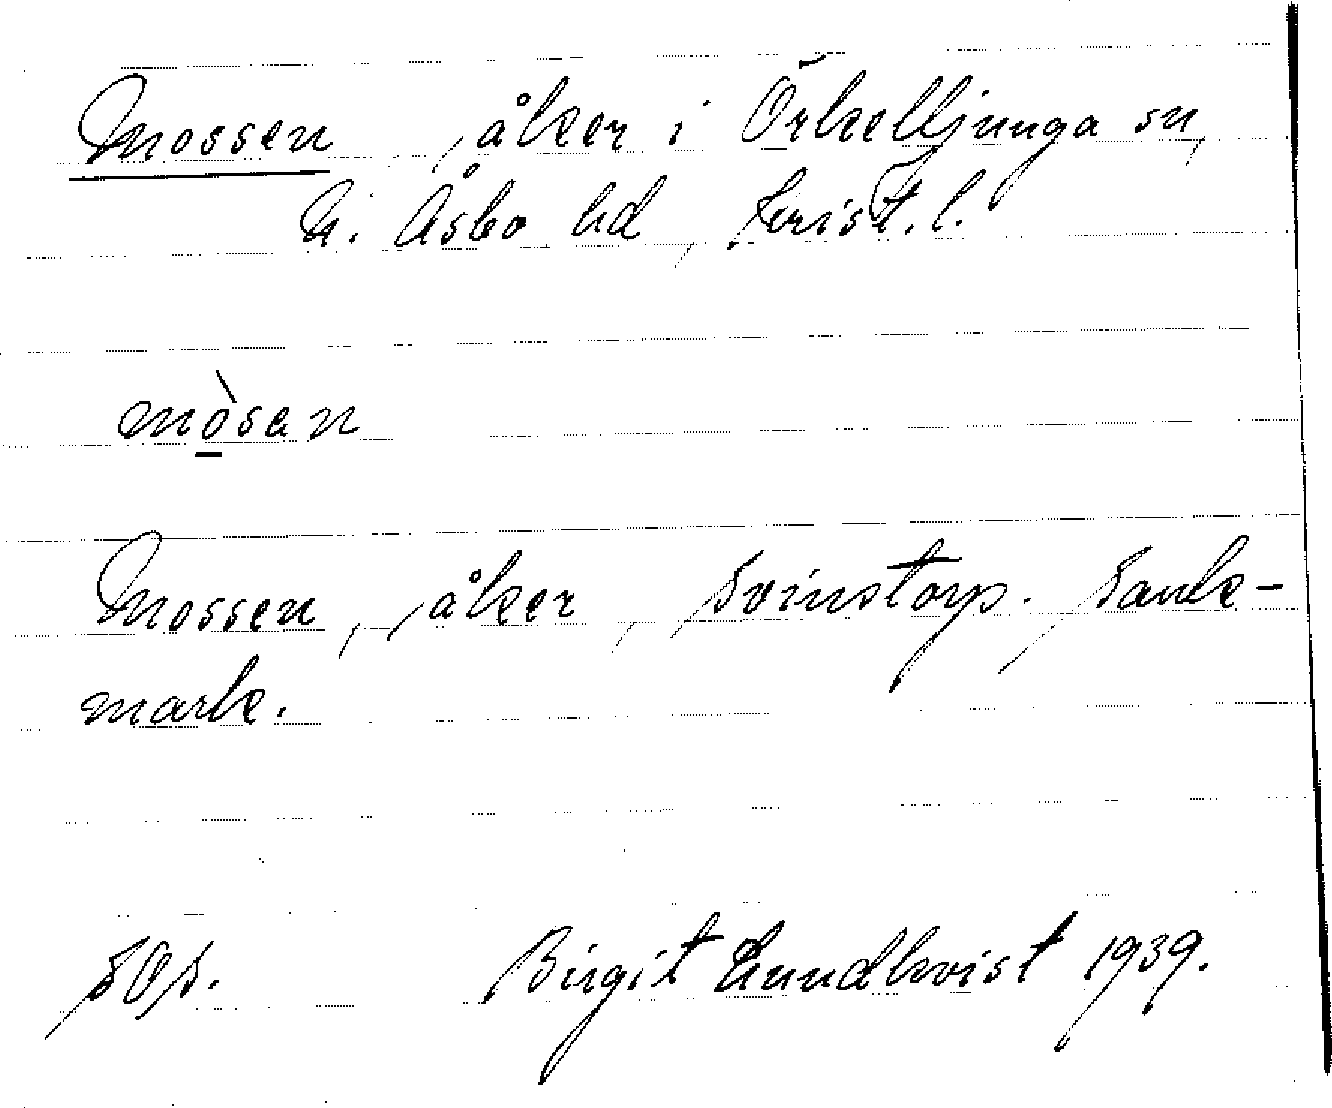 Mossen, åker i Örkelljunga sn,
N. Åsbo hd, Krist. l.
mòsan
Mossen, åker, Svinstorp. Sank-
mark.
SOS. Birgit Lundkvist 1939.